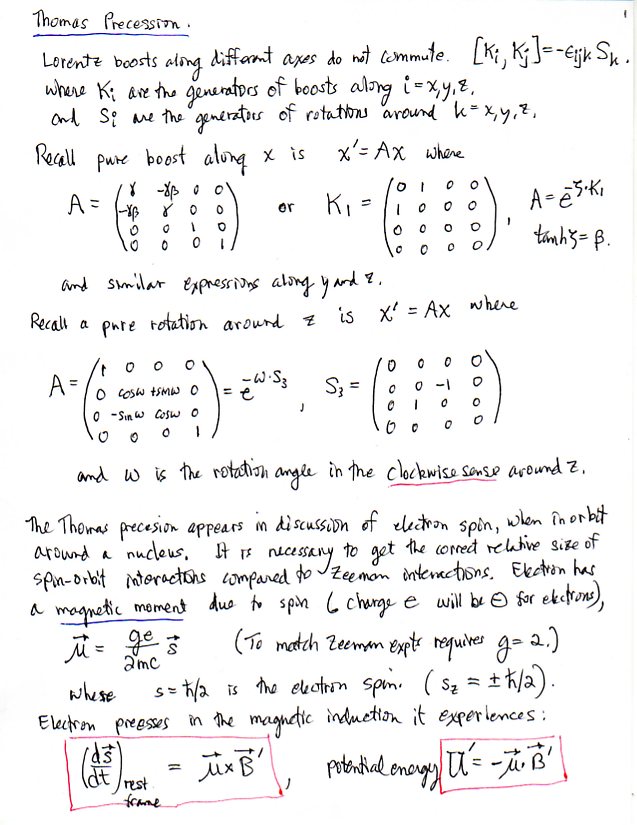 Thomas Precession.
1
Lorentz boosts along different axes do not commute. [Ki, Kj] = -εijk Sk.
where Ki are the generators of boosts along i = x, y, z,
and Si are the generators of rotations around k = x, y, z.
Recall pure boost along x is x' = Ax where
A = (γ -γβ 0 0; -γβ γ 0 0; 0 0 1 0; 0 0 0 1) or K1 = (0 1 0 0; 1 0 0 0; 0 0 0 0; 0 0 0 0), A = e^-ζ·K1
tanhζ = β.
and similar expressions along y and z.
Recall a pure rotation around z is x' = Ax where
A = (1 0 0 0; 0 cosω +sinω 0; 0 -sinω cosω 0; 0 0 0 1) = e^-ω·S3, S3 = (0 0 0 0; 0 0 -1 0; 0 1 0 0; 0 0 0 0)
and ω is the rotation angle in the clockwise sense around z.
The Thomas precesion appears in discussion of electron spin, when in orbit
around a nucleus. It is necessary to get the correct relative size of
spin-orbit interactions compared to Zeeman interactions. Electron has
a magnetic moment due to spin (charge e will be ⊖ for electrons),
μ⃗ = ge/2mc s⃗ (To match Zeeman expts requires g = 2.)
where s = ħ/2 is the electron spin. (sz = ±ħ/2).
Electron precesses in the magnetic induction it experiences:
(ds⃗/dt)rest frame = μ⃗ x B⃗', potential energy U' = -μ⃗·B⃗'